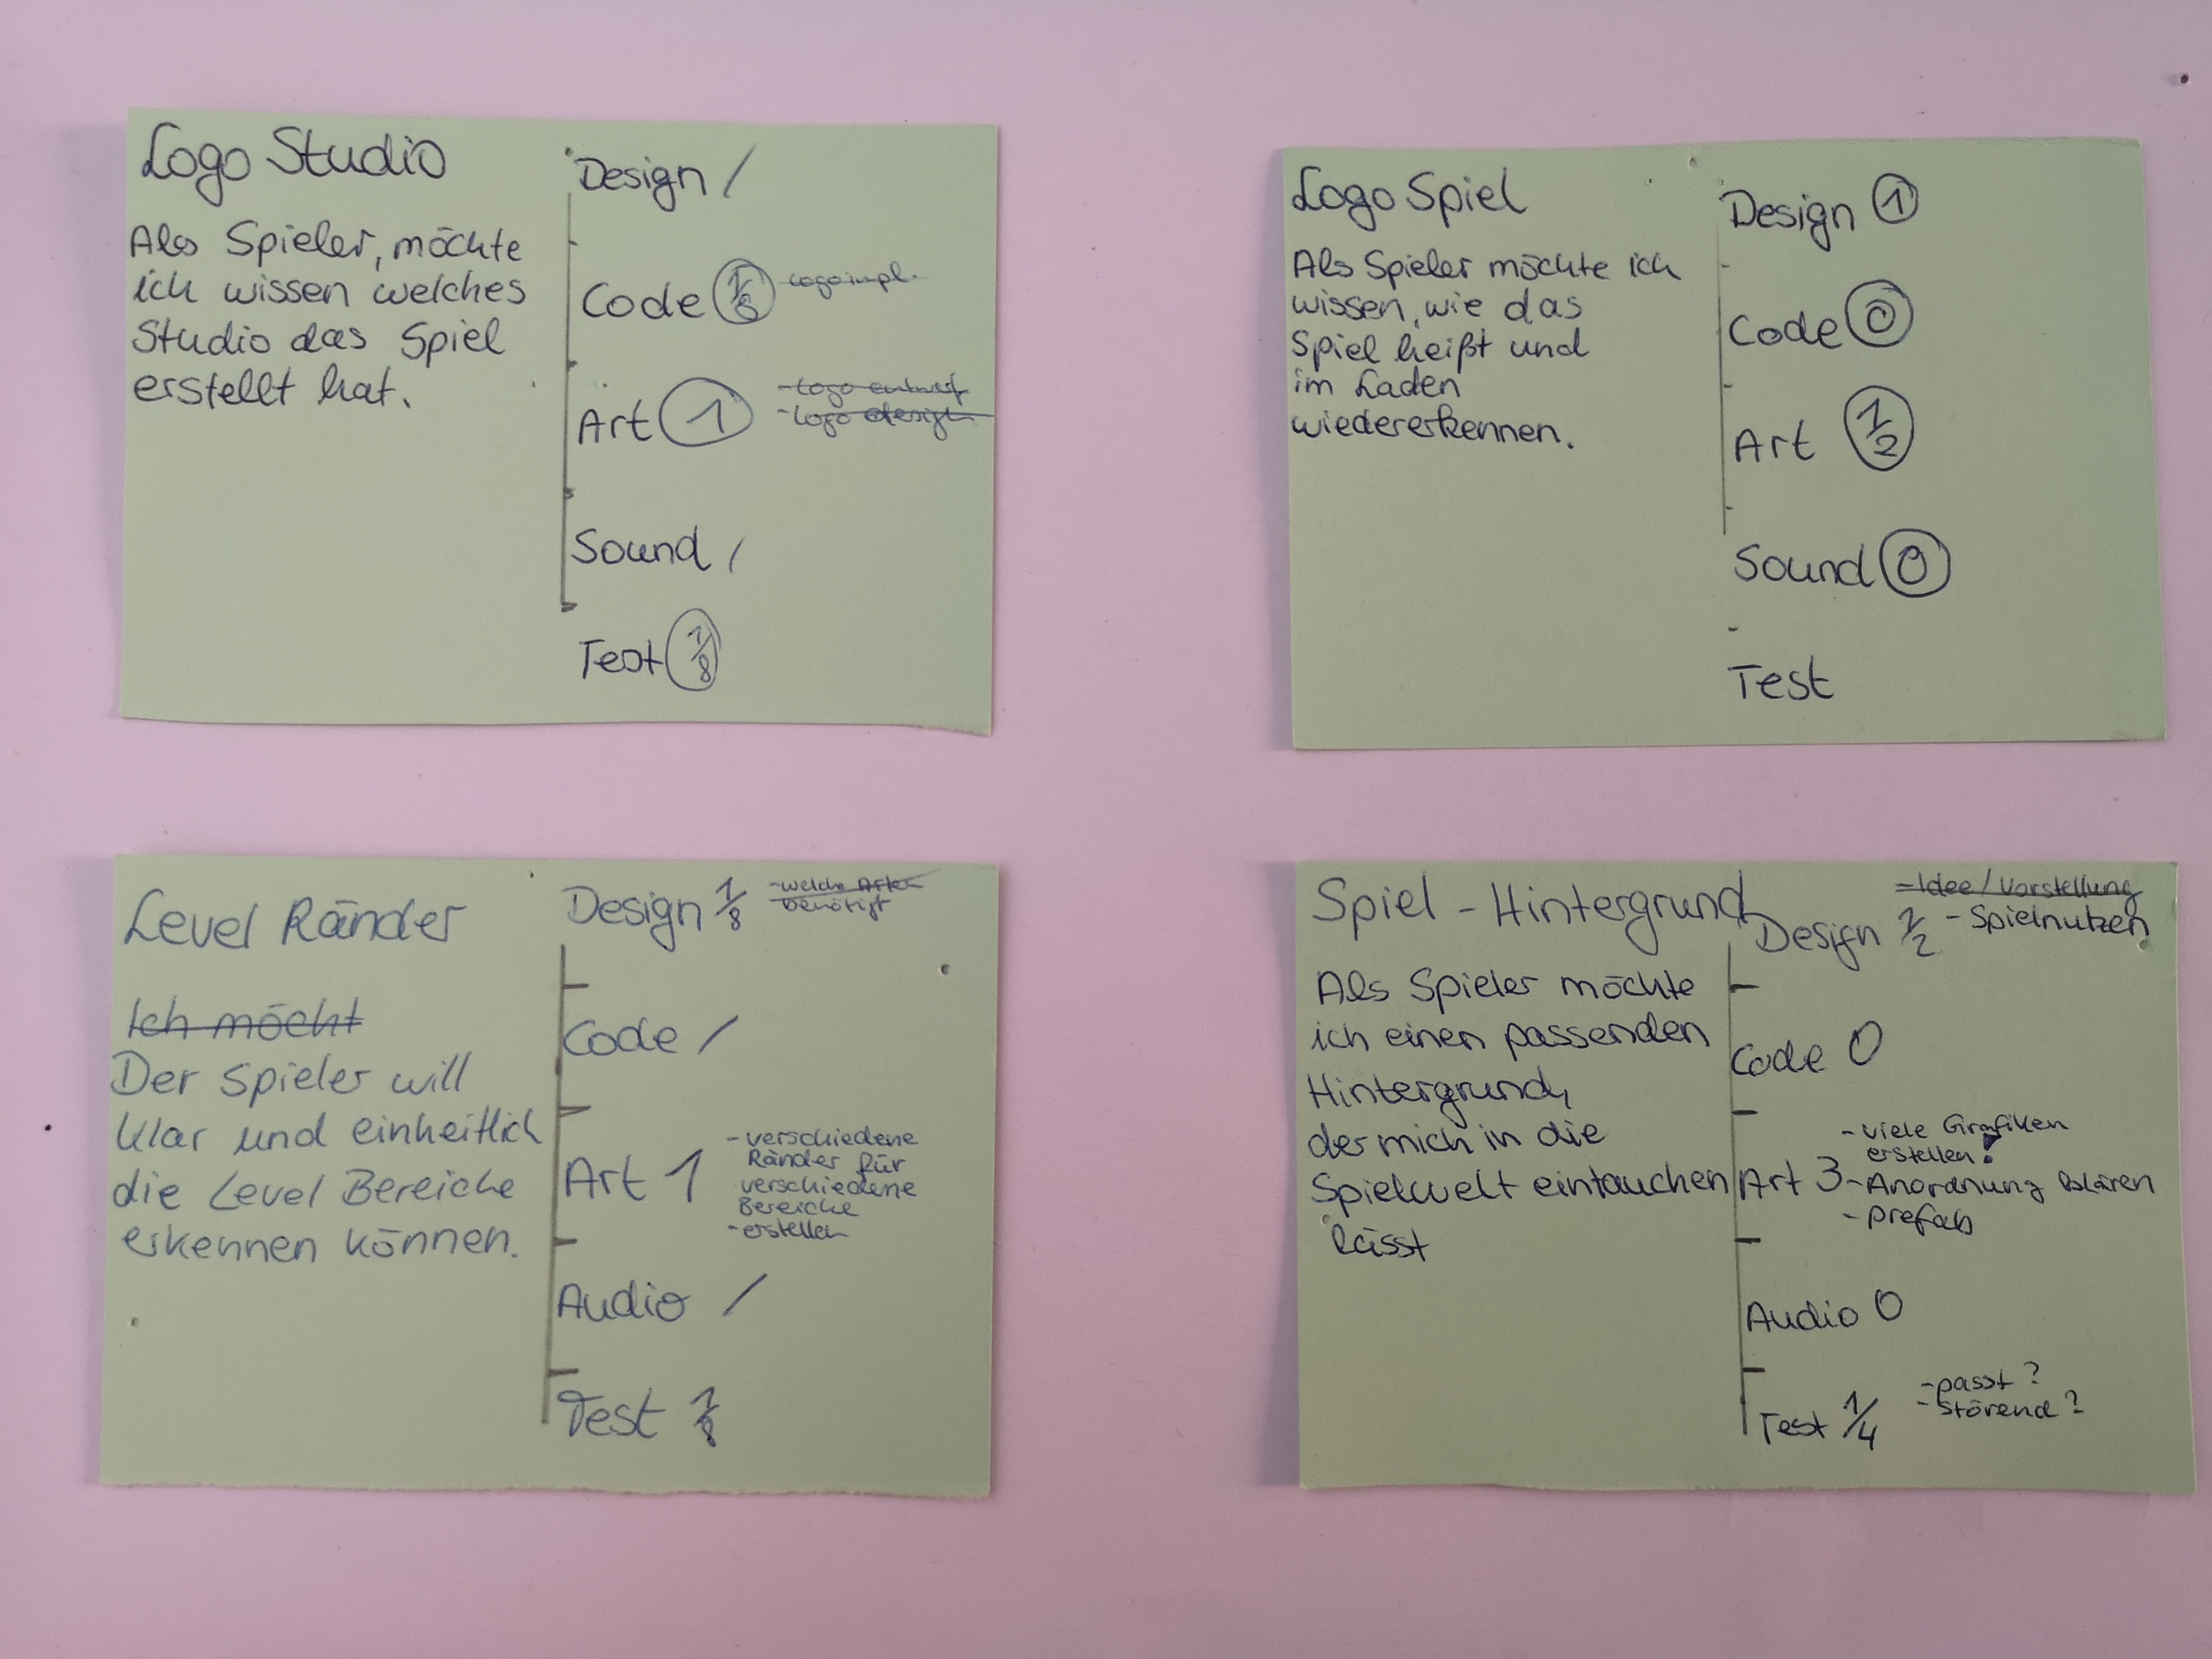 Logo Studio
Als Spieler, möchte
ich wissen welches
Studio das Spiel
erstellt hat.
Design /
Code logoimpl.
Art 1 - Logo entwurf
- Logo design
Sound /
Test 1/8
Logo Spiel
Als Spieler möchte ich
wissen, wie das
Spiel heißt und
im Laden
wiedererkennen.
Design 1
Code 0
Art 1/2
Sound 0
Test
Level Ränder
Ich möcht
Der Spieler will
klar und einheitlich
die Level Bereiche
erkennen können.
Design 1/8 - welche Arten
benötigt
Code /
Art 1 - verschiedene
Ränder für
verschiedene
Bereiche
- erstellen
Audio /
Test 1/8
Spiel - Hintergrund
Als Spieler möchte
ich einen passenden
Hintergrund,
der mich in die
Spielwelt eintauchen
lässt
- Idee / Vorstellung
Design 1/2 - Spielnutzen
Code 0
- viele Grafiken
erstellen!
Art 3 - Anordnung klären
- prefab
Audio 0
Test 1/4 - passt?
- störend?